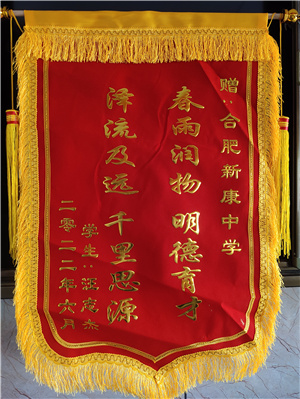 赠：合肥新康中学
春雨润物 明德育才
泽流及远 千里思源
学生：汪志杰
二零二二年六月